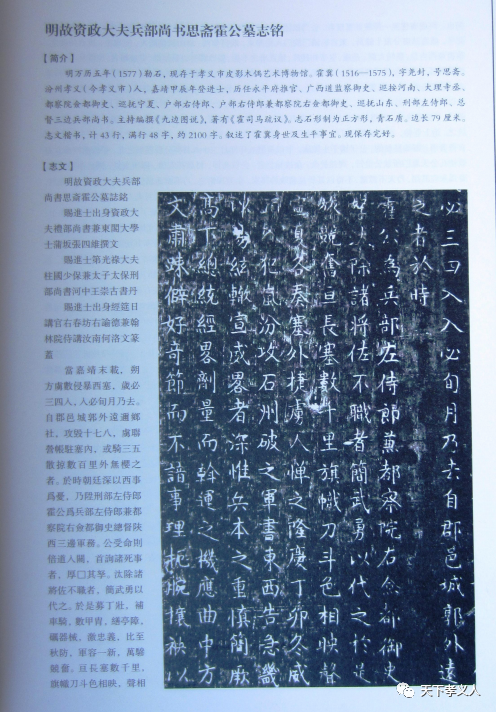 明故资政大夫兵部尚书思斋霍公墓志铭
【简介】
明万历五年（1577）勒石，现存于孝义市皮影木偶艺术博物馆。霍冀（1516—1575），字尧封，号思斋。
汾州孝义（今孝义市）人，嘉靖甲辰年登进士，历任永平府推官、广西道监察御史、巡按河南、大理寺丞、
都察院佥都御史、巡抚宁夏、户部右侍郎、户部右侍郎兼都察院右佥都御史、巡抚山东、刑部左侍郎、总
督三边兵部尚书。主持编撰《九边图说》，著有《霍司马政议》。志石形制为正方形，青石质。边长79厘米。
志文楷书，计43行，满行48字，约2100字。叙述了霍冀身世及生平事宜。现保存完好。
【志文】
明故資政大夫兵部
尚書思齋霍公墓誌銘
賜進士出身資政大
夫禮部尚書兼東閣大學
士蒲坂張四維撰文
賜進士第光祿大夫
柱國少保兼太子太保刑
部尚書河中王崇古書丹
賜進士出身經筵日
講官右春坊右諭德兼翰
林院侍講汝南何洛文篆
蓋
當嘉靖末載，朔
方虜數侵暴西塞，歲必
三四入，人必旬月乃去。
自郡邑城郭外遠邇鄉
社，攻毀十七八，虜聯
營帳駐塞內，或騎三五
散掠數百里外無櫻之
者。於時朝廷深以西事
爲憂，乃陞刑部左侍郎
霍公爲兵部左侍郎兼都
察院右僉都御史總督陝
西三邊軍務。公受命則
倍道入關，首詢諸死事
者，厚□其孥。汰除諸
將佐不職者，簡武勇以
代之。於是募丁壯，補
車騎，數甲胄，繕亭障，
礪器械，激忠義，比至
秋防，軍容一新，萬騎
競奮。亘長塞數千里，
旗幟刀斗色相映，聲相
必三四入入必旬月乃去自郡邑城郭外遠
之者於時
霍公爲兵部左侍郎兼都察院右僉都御史
汰除諸將佐不職者簡武勇以代之於是
競奮亘長塞數千里旗幟刀斗色相映聲
塞外捷虜人憚之隆慶丁卯冬威
犯嵐汾攻石州破之軍書東西告急幾
易絃轍宣威畧者深惟兵本之重慎簡厥
總統經畧劑量而斡運之機應曲中方
文肅疎僻好奇節而不諳事理扼腕攘袂以
天下孝义人